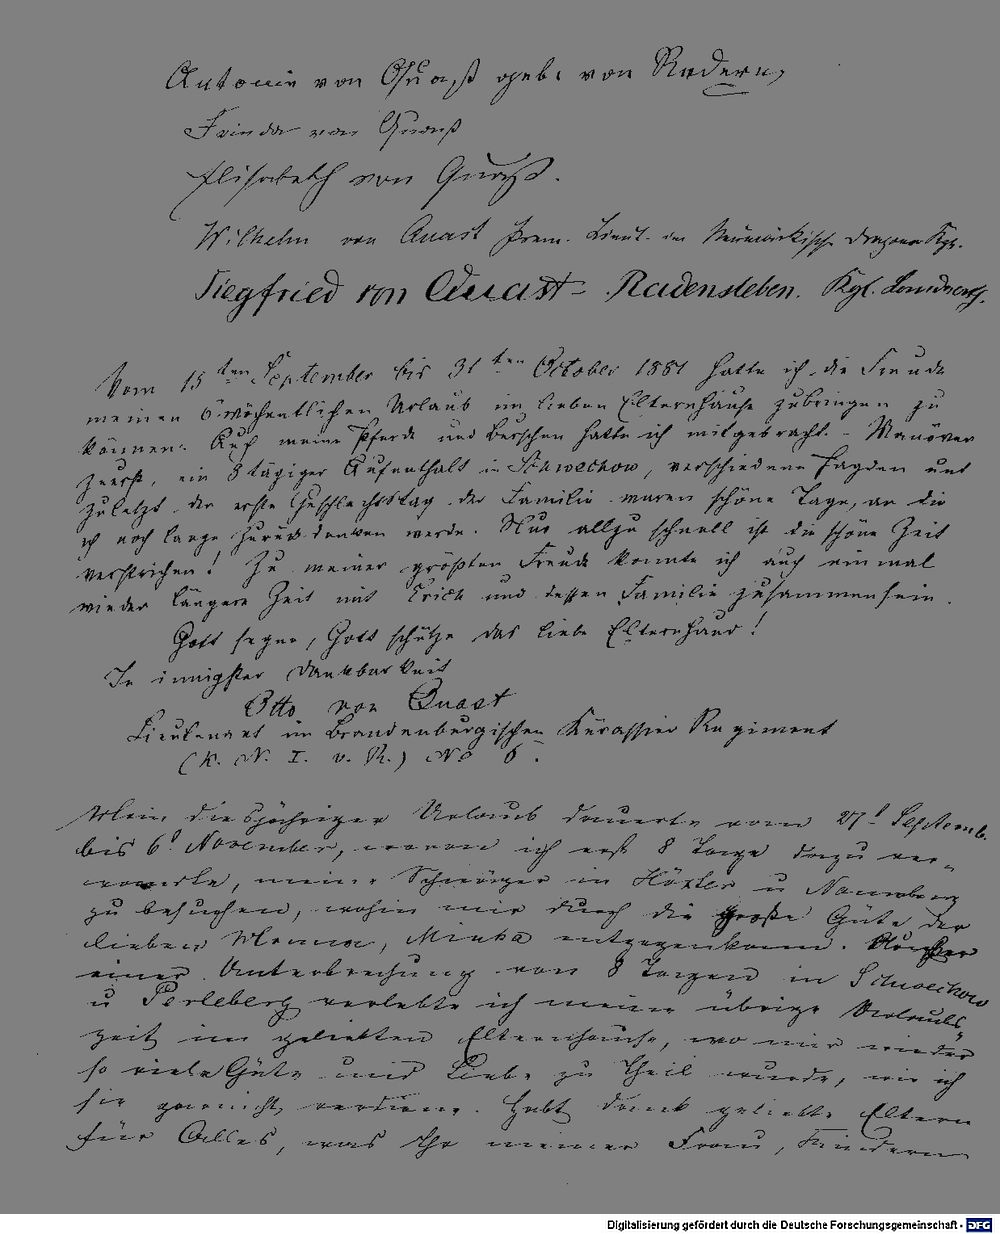 Antonie von Quast geb. von Redern,
Frieda von Quast
Elisabeth von Quast.
Wilhelm von Quast Prem. Lieut. im Neumärkisch. Dragoner Rgt.
Siegfried von Quast - Radensleben. Kgl.
Vom 15ten September bis 31ten October 1881 hatte ich die Freude
meinen 6 wöchentlichen Urlaub im lieben Elternhause zubringen zu
können. Auch meine Pferde und Burschen hatte ich mitgebracht. - Manöver
zuerst, ein 8 tägiger Aufenthalt in Schwechow, verschiedene Jagden und
zuletzt der erste Geschlechtstag der Familie waren schöne Tage, an die
ich noch lange zurück denken werde. Nur allzu schnell ist die schöne Zeit
verstrichen! Zu meiner größten Freude konnte ich auch einmal
wieder längere Zeit mit Erich und dessen Familie zusammensein.
Gott segne, Gott schütze das liebe Elternhaus!
In innigster Dankbarkeit
Otto von Quast
Lieutenant im Brandenburgischen Kürassier Regiment
(K. N. I. v. R.) No 6.
Mein diesjähriger Urlaub dauerte vom 27t Septemb.
bis 6t November, wovon ich erst 8 Tage dazu ver-
wandte, meine Schwäger in Höxter u Naumburg
zu besuchen, wohin mir durch die große Güte der
lieben Mama, Minka entgegenkam. Außer
einer Unterbrechung von 8 Tagen in Schwechow
u Perleberg verlebte ich meine übrige Urlaubs-
zeit im geliebten Elternhause, wo mir wieder
so viele Güte und Liebe zu Theil wurde, wie ich
sie garnicht verdiene. Habt Dank geliebte Eltern
für Alles, was Ihr meiner Frau, Kindern
Digitalisierung gefördert durch die Deutsche Forschungsgemeinschaft - DFG